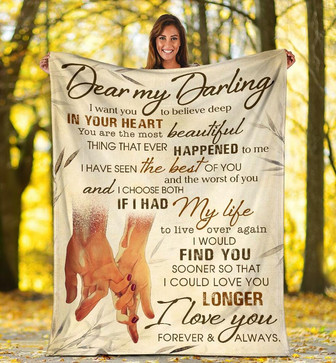 Dear my Darling
I want you to believe deep
IN YOUR HEART
You are the most beautiful
THING THAT EVER HAPPENED to me
I HAVE SEEN the best OF YOU
and the worst of you
and I CHOOSE BOTH
IF I HAD My life
to live over again
I WOULD
FIND YOU
SOONER SO THAT
I COULD LOVE YOU
LONGER
I love you
FOREVER & ALWAYS.